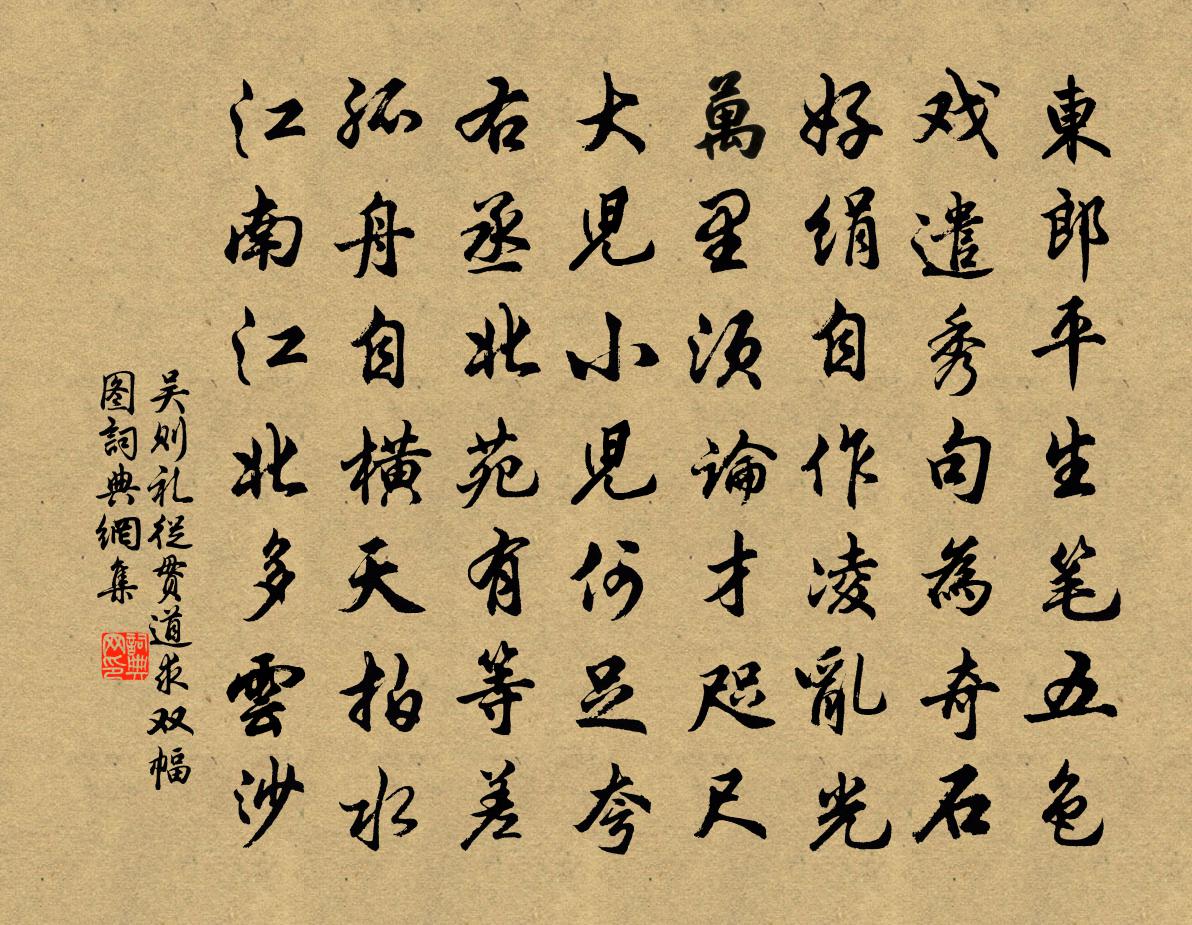 東郎平生笔五色
戏遣秀句為奇石
好绢自作凌亂光
萬里须論才咫尺
大児小児何足夸
右丞北苑有等差
孤舟自横天拍水
江南江北多雲沙
吴则礼從贯道求双幅
图詞典網集
詞典网印